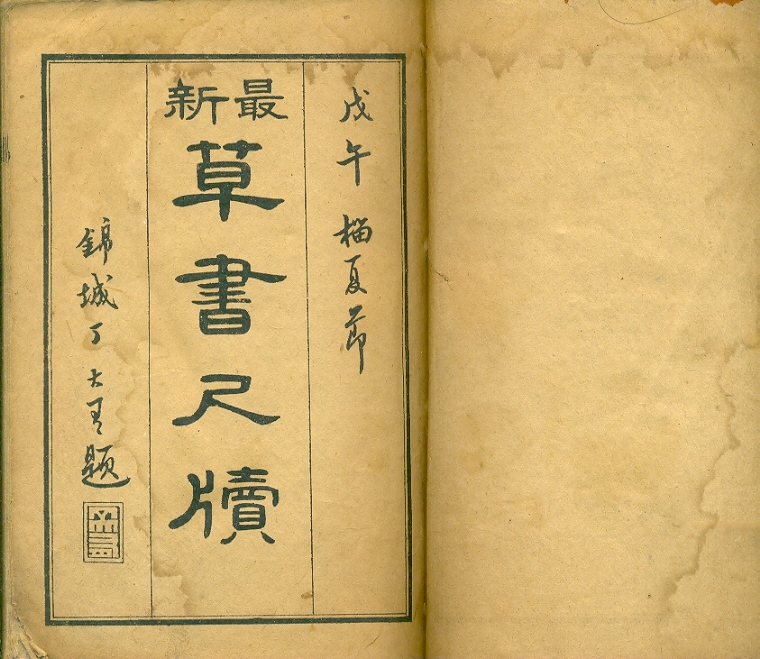 戊午榴夏節
最新
草書尺牘
錦城丁大題